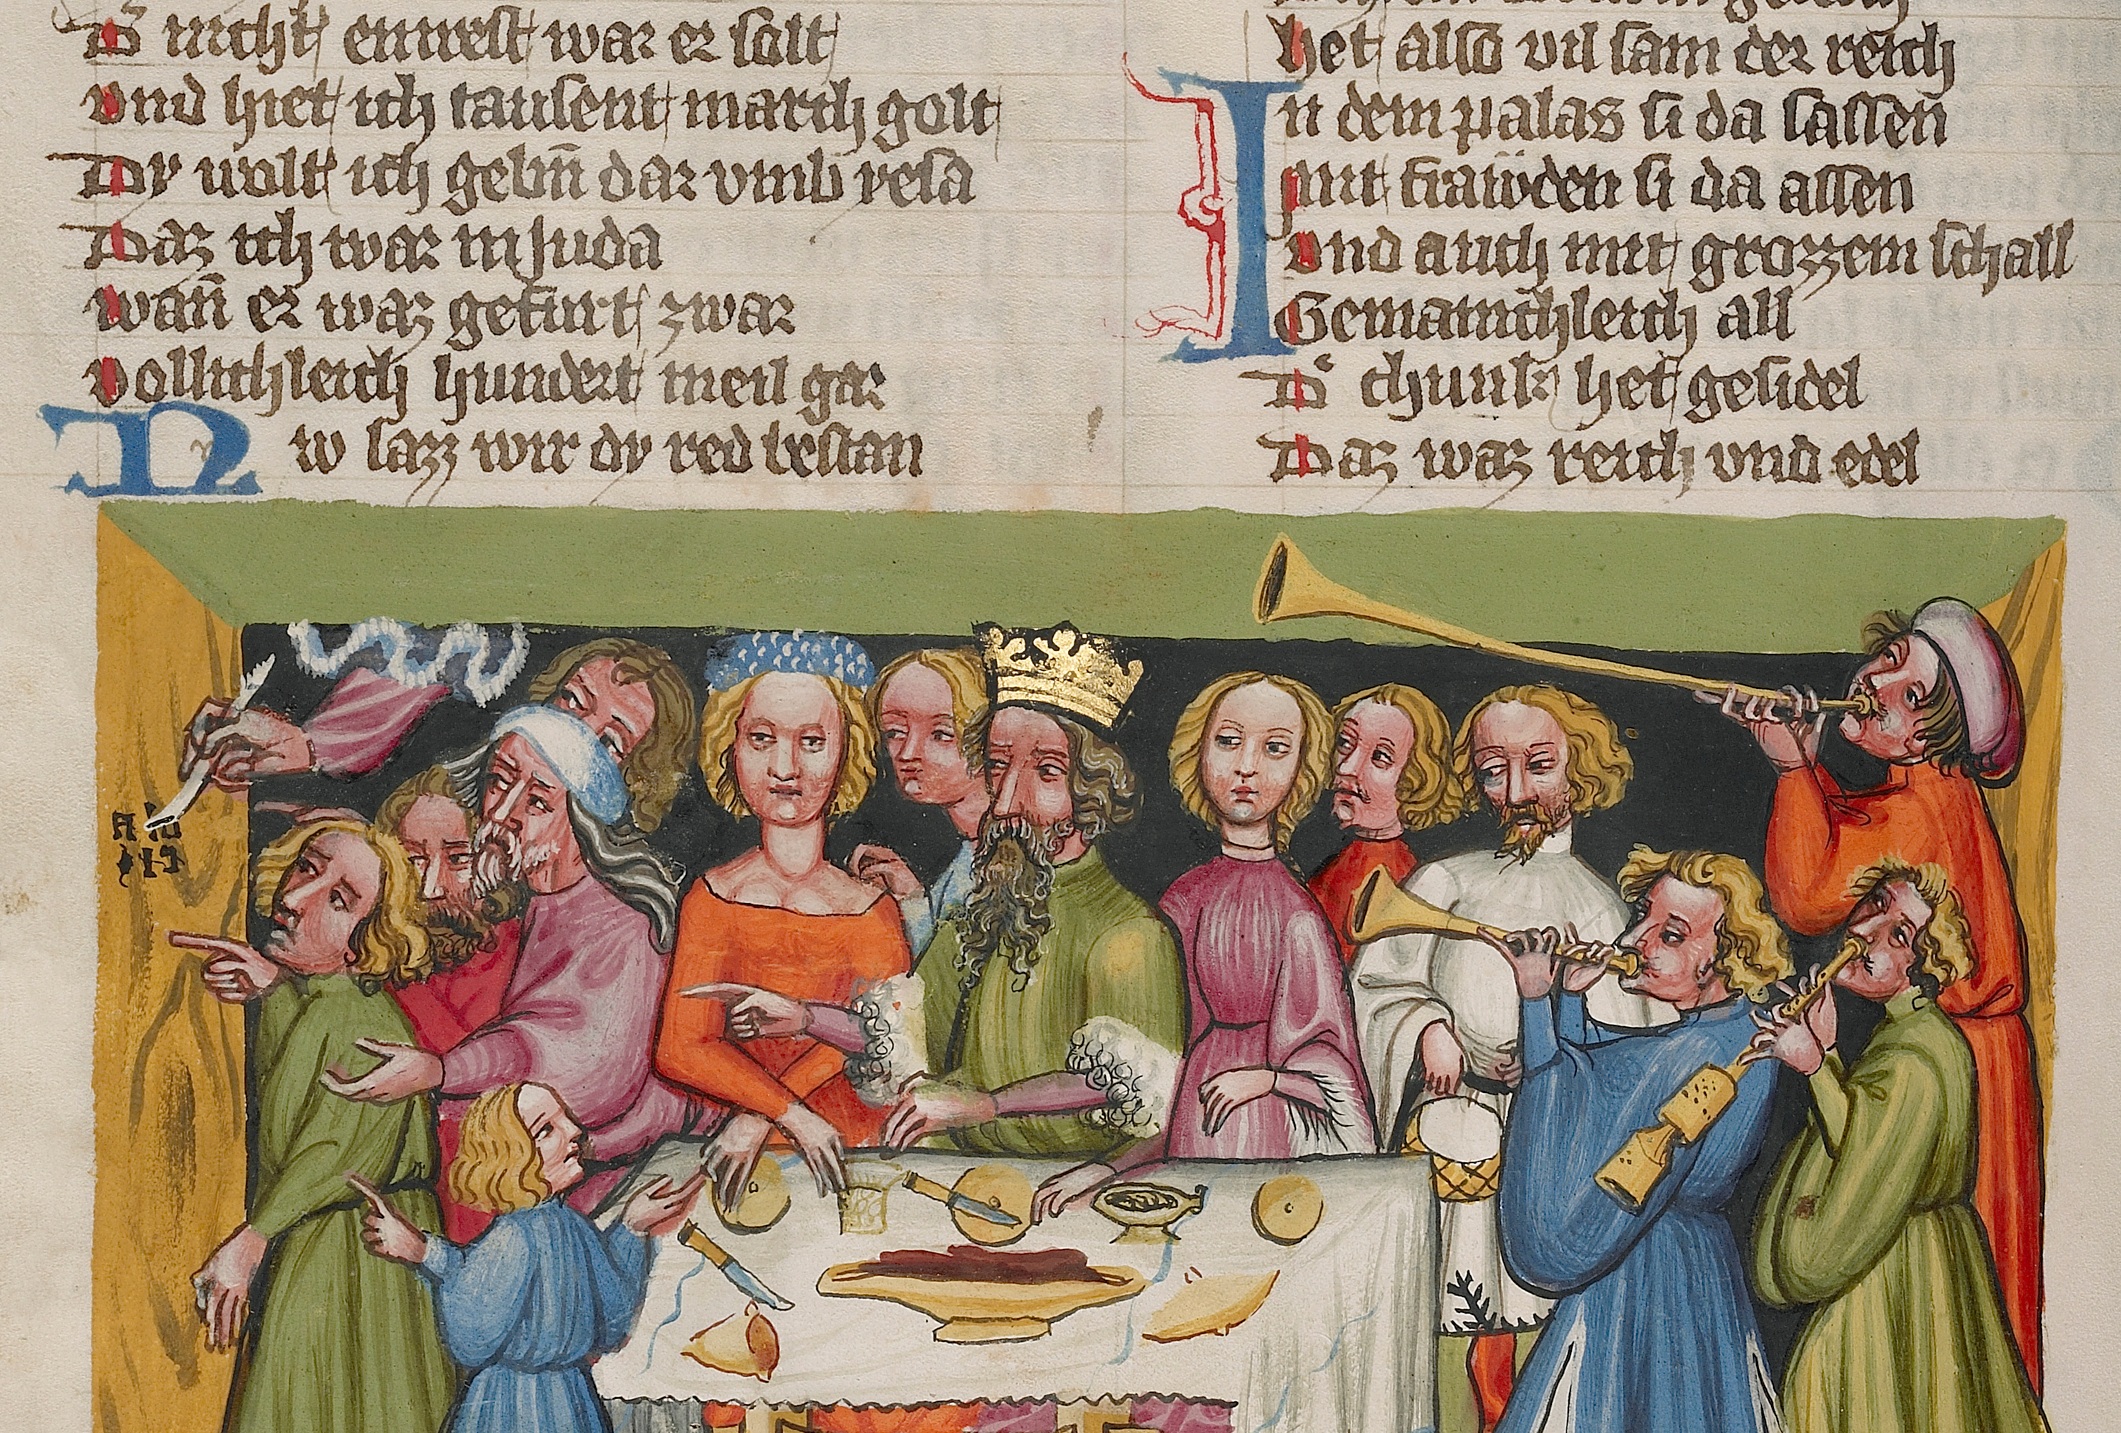 D' nicht enwest war er solt
vnd hiet ich tausent march golt
Dy wolt ich gebn̄ dar vmb yesa
Daz ich war in Juda
wan̄ er waz gefurt zwar
vollichleich hundert meil gar
Nw lazz wir dy red bestan
het also vil sam der reich
In dem palas si da sassen
mit frawden si da assen
vnd auch mit grozzem schall
Gemainchleich all
D' chunk het gesidel
Daz waz reich vnd edel